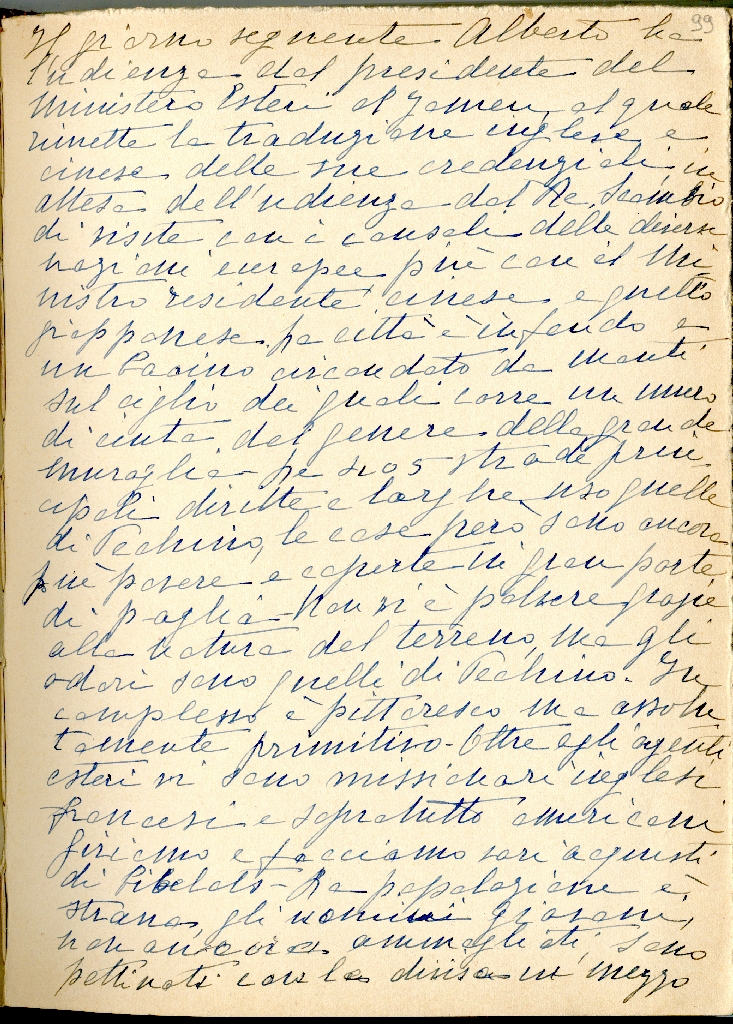 99
Il giorno seguente Alberto ha
l'udienza dal presidente del
Ministero Esteri al Jamen, al quale
rimette la traduzione inglese e
cinese delle sue credenziali, in
attesa dell'udienza dal Re. Scambio
di visite con i consoli delle diverse
nazioni europee più con il Mi
nistro residente cinese e quello
giapponese. La città è in fondo a
un bacino circondato da monti
sul ciglio dei quali corre un muro
di cinta del genere della grande
muraglia - Ha 4 o 5 strade prin
cipali diritte e larghe uso quelle
di Pechino, le case però sono ancora
più povere e coperte in gran parte
di paglia - Non vi è polvere grazie
alla natura del terreno, ma gli
odori sono quelli di Pechino. In
complesso è pittoresco ma assolu
tamente primitivo - Oltre agli agenti
esteri vi sono missionari inglesi
francesi e sopratutto americani
Giriamo e facciamo vari acquisti
di bibelots - La popolazione è
strana, gli uomini giovani,
non ancora ammogliati, sono
pettinati con la divisa in mezzo